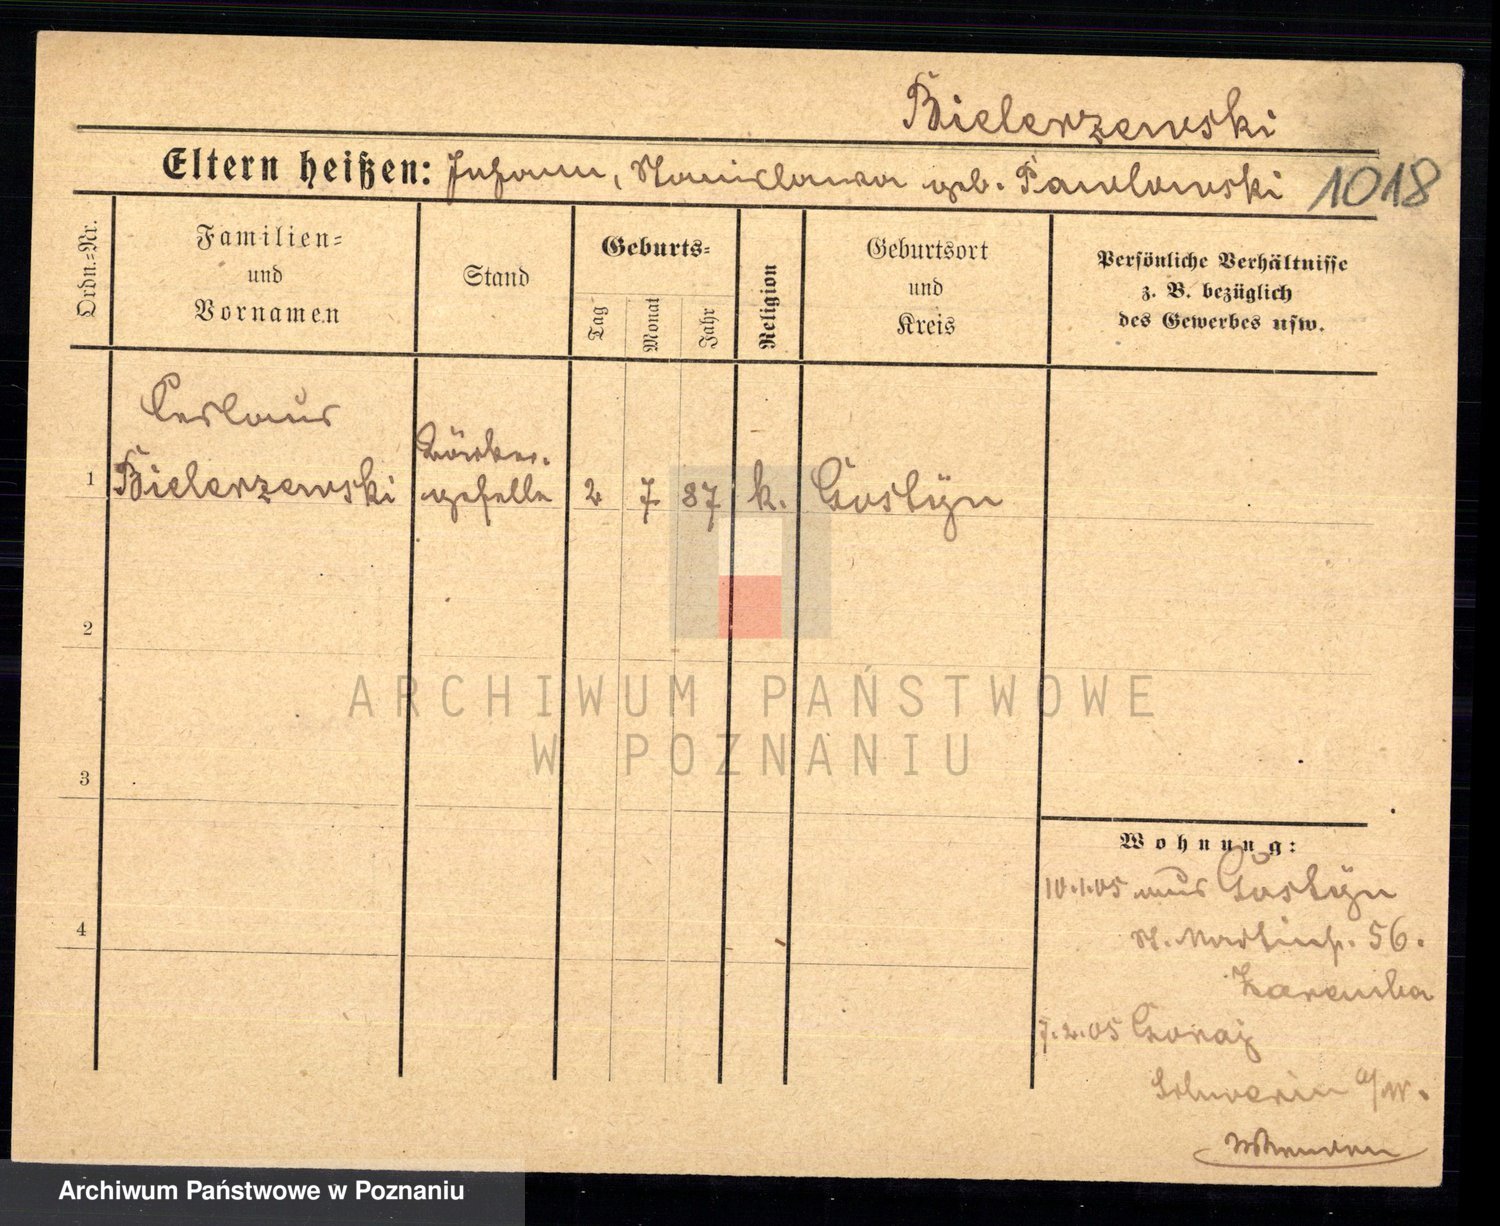 Bielerzewski
Eltern heißen: Johann, Stanislawa geb. Pawlowski 1018
Ordn.=Nr.
Familien=
und
Vornamen
Stand
Geburts=
Tag
Monat
Jahr
Religion
Geburtsort
und
Kreis
Persönliche Verhältnisse
z. B. bezüglich
des Gewerbes usw.
Ceslaus
1 Bielerzewski
geselle 2 7 87 k. Gostÿn
2
3
4
ARCHIWUM PAŃSTWOWE
W POZNANIU
Wohnung:
10.1.05 aus Gostÿn
St. Martinstr. 56.
Zaremba
7.2.05 Goray
Schwerin a/W.
Archiwum Państwowe w Poznaniu